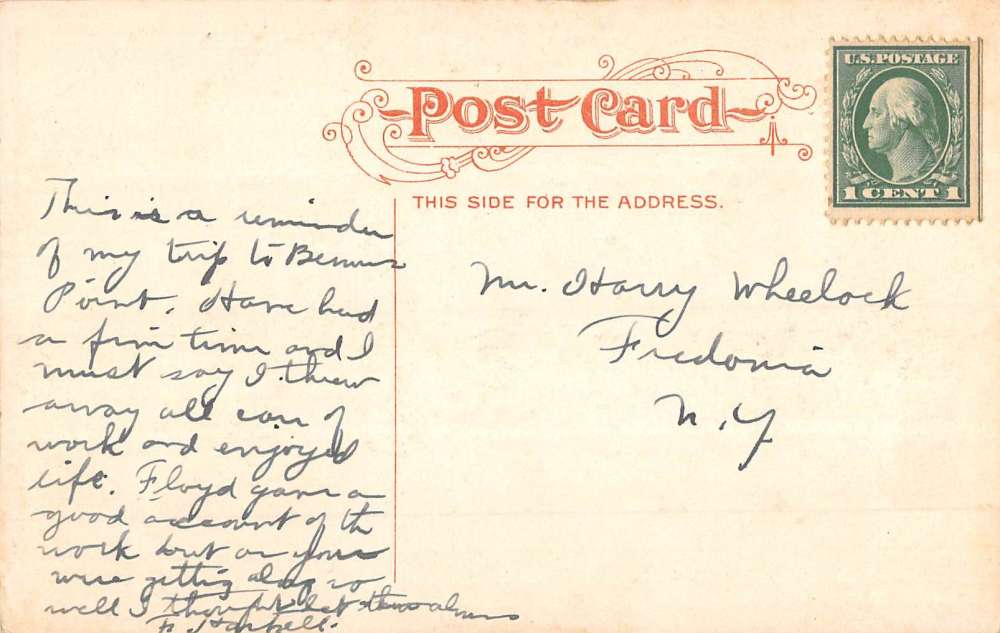 Post Card
THIS SIDE FOR THE ADDRESS.
U.S. POSTAGE
1 CENT 1
This is a reminder
of my trip to Bemus
Point. Have had
a fine time and I
must say I threw
away all care of
work and enjoyed
life. Floyd gave a
good account of the
work but as you
were getting along so
well I thought let
Mr. Harry Wheelock
Fredonia
N.Y